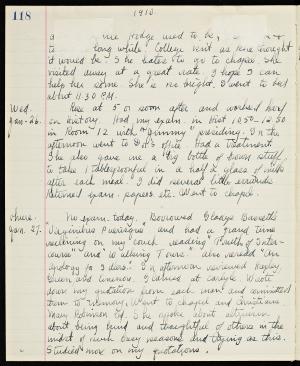 118
1910
a nice Hodge used to be,
to long while College
it would be & she hates to go to chapel She
visited away at a great rate. I hope I can
help her some. She is no I went to bed
about 11:30 P.M.
Wed. Rise at 5 or soon after and worked hard
Jan. 26. on history. Had my exam. in Hist 10:50-12:50
in Room 12 with "Jimmy" presiding. In the
afternoon went to office. Had a treatment.
She also gave me a big bottle of brown stuff
to take 1 tablespoonful in a half a glass of milk
after each meal. I did several little errands.
Returned papers etc. Went to chapel.
Thurs. No exam. today. Borrowed Gladys
Jan. 27. "Virginibus Puerisque" and had a grand time
reclining on my couch reading "Truth of Inter-
course" and "Walking Tours." also reread "An
Apology for Idlers." In afternoon reviewed Hazlitt
and Wrote
down my quotation from each man and committed
them to memory. Went to chapel and Christians
Mary Robinson led. She spoke about altruism
about being kind and thoughtful of others in the
midst of such busy seasons and trying as this.
Studied more on my quotations.